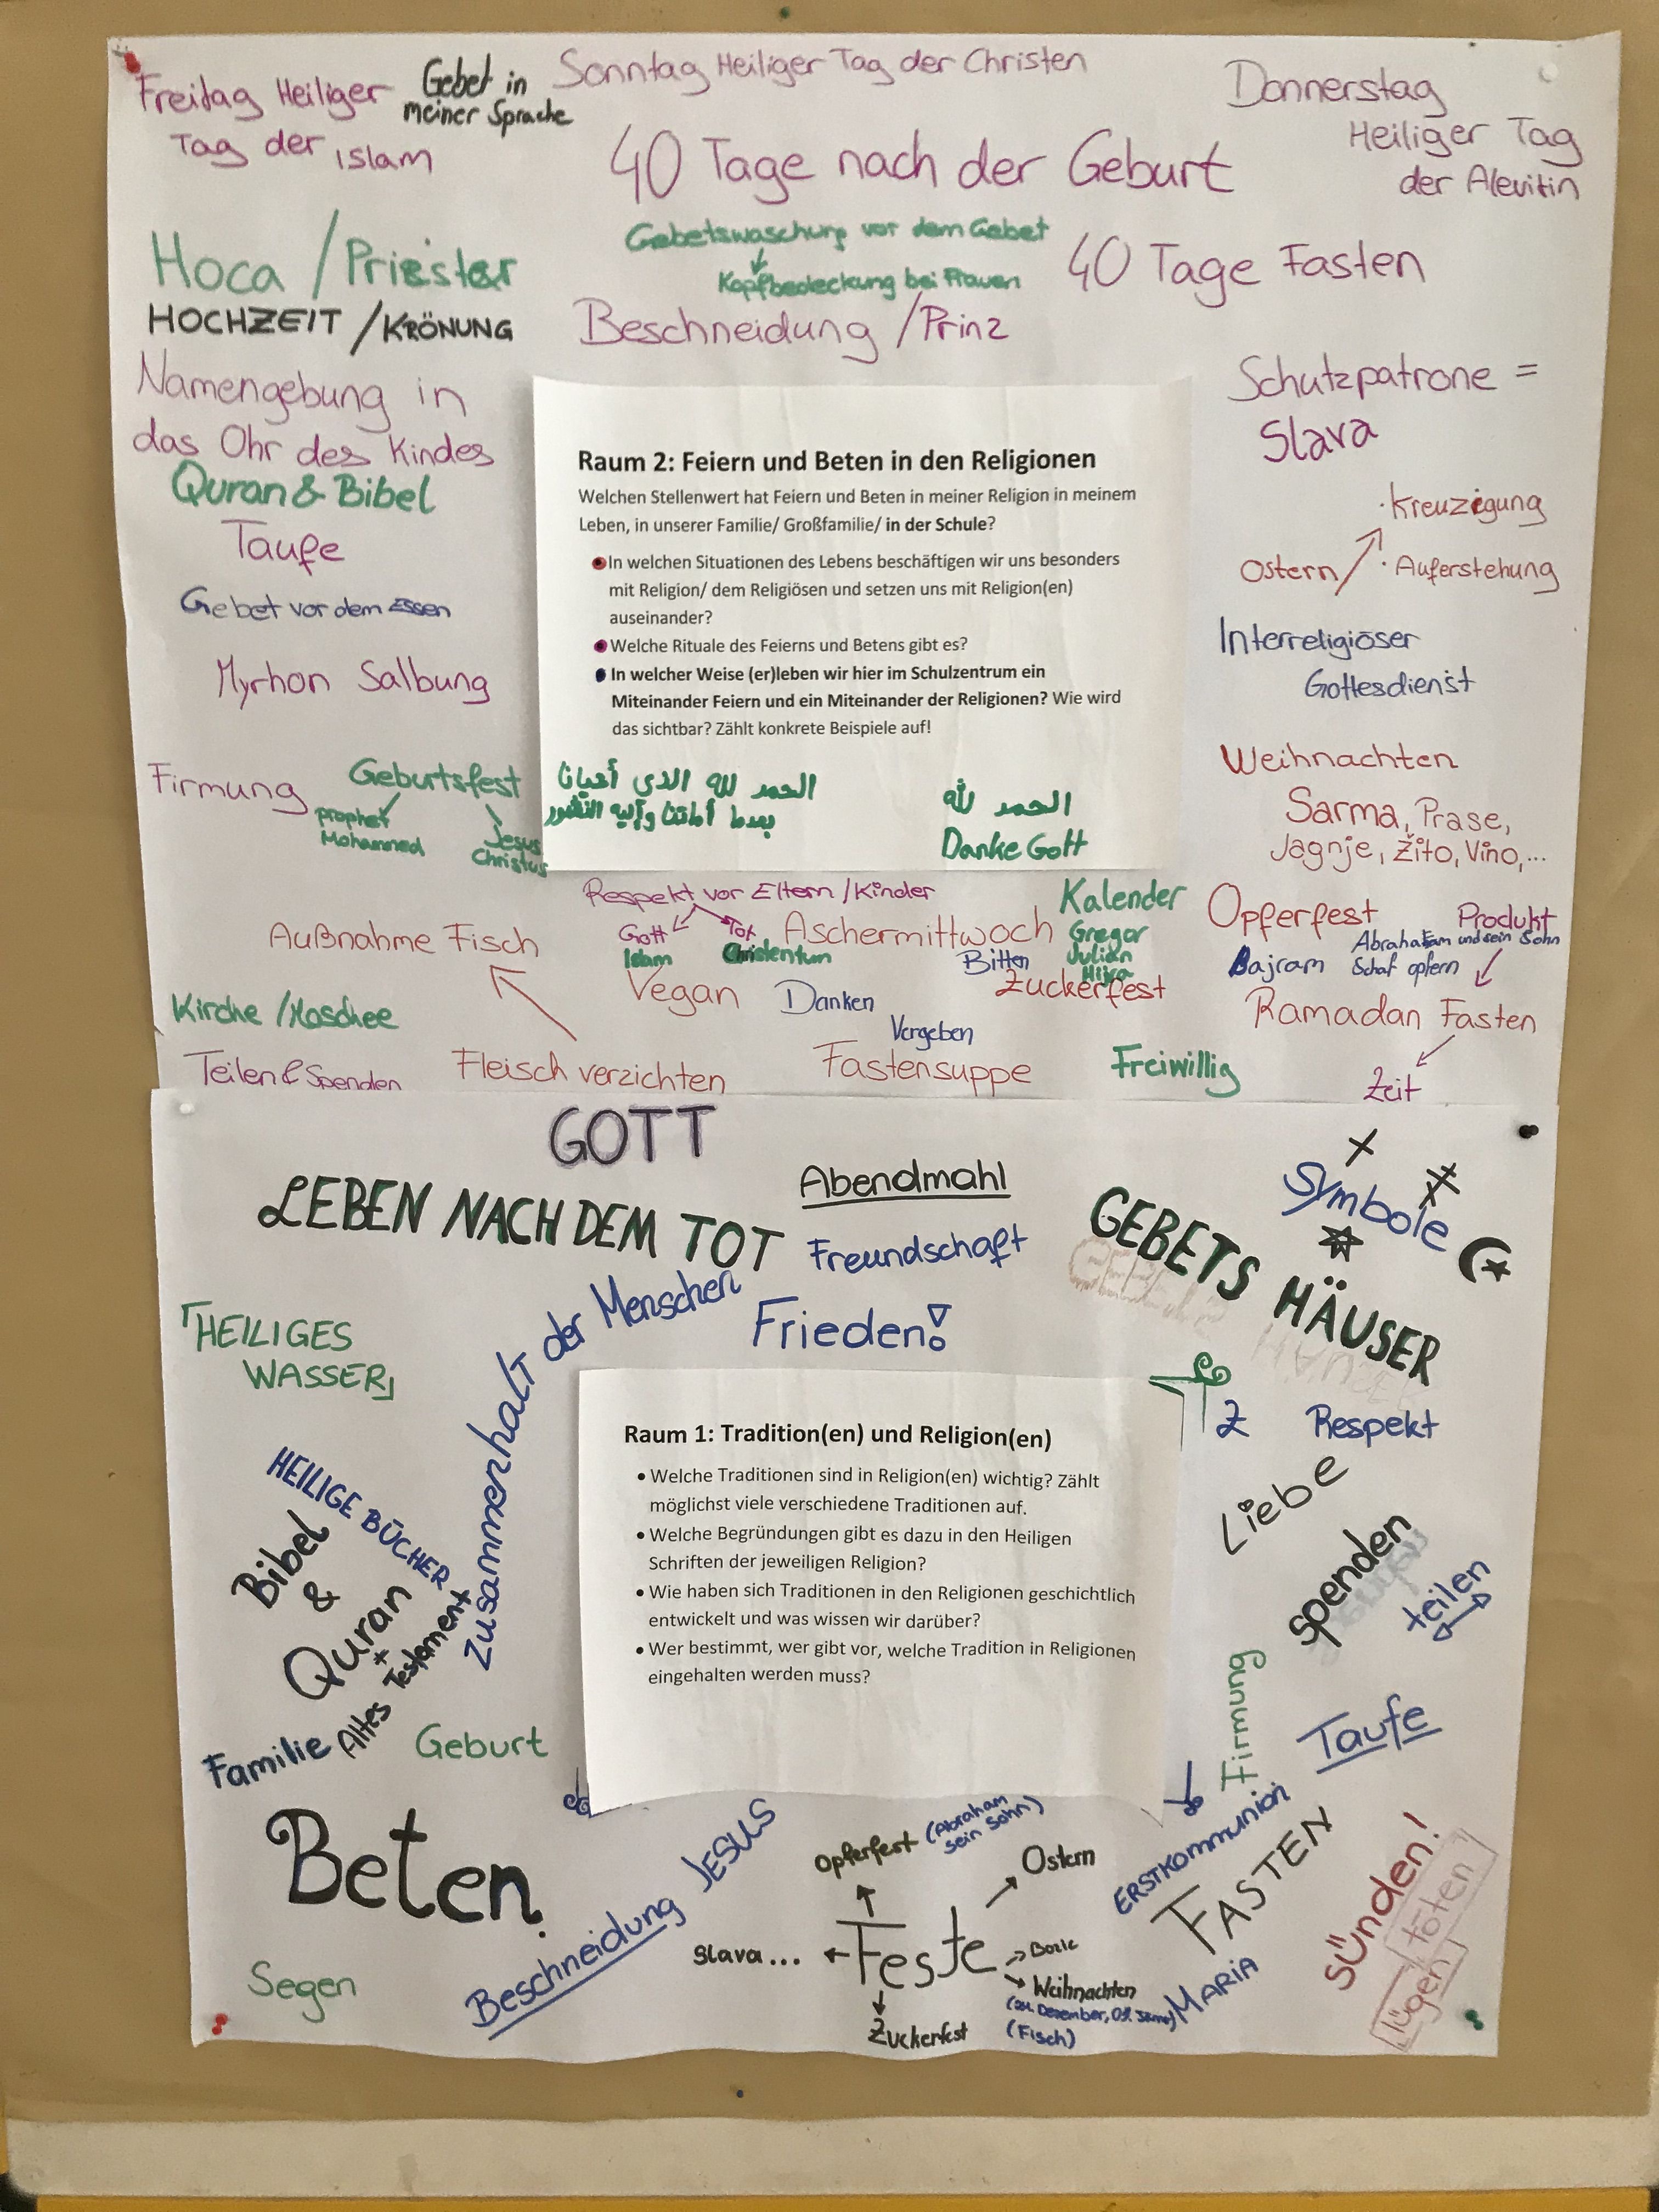 Freitag Heiliger
Tag der Islam
Gebet in
meiner Sprache
Sonntag Heiliger Tag der Christen
Donnerstag
Heiliger Tag
der Alevitin
40 Tage nach der Geburt
Hoca / Priester
Gebetswaschung vor dem Gebet
Kopfbedeckung bei Frauen
40 Tage Fasten
HOCHZEIT / KRÖNUNG
Beschneidung / Prinz
Namengebung in
das Ohr des Kindes
Quran & Bibel
Taufe
Gebet vor dem Essen
Myrhon Salbung
Firmung
Geburtsfest
prophet
Mohammed
Jesus
Christus
Schutzpatrone =
Slava
Ostern
· Kreuzigung
· Auferstehung
Interreligiöser
Gottesdienst
Weihnachten
Sarma, Prase,
Jagnje, Žito, Vino,...
Raum 2: Feiern und Beten in den Religionen
Welchen Stellenwert hat Feiern und Beten in meiner Religion in meinem
Leben, in unserer Familie/ Großfamilie/ in der Schule?
● In welchen Situationen des Lebens beschäftigen wir uns besonders
mit Religion/ dem Religiösen und setzen uns mit Religion(en)
auseinander?
● Welche Rituale des Feierns und Betens gibt es?
● In welcher Weise (er)leben wir hier im Schulzentrum ein
Miteinander Feiern und ein Miteinander der Religionen? Wie wird
das sichtbar? Zählt konkrete Beispiele auf!
الحمد لله الذي أحيانا
بعدما أماتنا وإليه النشور
الحمد لله
Danke Gott
Respekt vor Eltern / Kinder
Gott
Islam
Tot
Christentum
Außnahme Fisch
Aschermittwoch
Kalender
Gregor
Julian
Hijra
Opferfest
Produkt
Abraham und sein Sohn
Schaf opfern
Bajram
Bitten
Vegan
Danken
Zuckerfest
Vergeben
Kirche / Moschee
Ramadan Fasten
Teilen & Spenden
Fleisch verzichten
Fastensuppe
Freiwillig
Zeit
GOTT
LEBEN NACH DEM TOT
Abendmahl
Freundschaft
GEBETS HÄUSER
Symbole
「HEILIGES
WASSER」
Zusammenhalt der Menschen
Frieden!
2
Respekt
Liebe
spenden
teilen
HEILIGE BÜCHER
Bibel
&
Quran
+
Altes Testament
Familie
Geburt
Raum 1: Tradition(en) und Religion(en)
• Welche Traditionen sind in Religion(en) wichtig? Zählt
möglichst viele verschiedene Traditionen auf.
• Welche Begründungen gibt es dazu in den Heiligen
Schriften der jeweiligen Religion?
• Wie haben sich Traditionen in den Religionen geschichtlich
entwickelt und was wissen wir darüber?
• Wer bestimmt, wer gibt vor, welche Tradition in Religionen
eingehalten werden muss?
Firmung
Taufe
ERSTKOMMUNION
FASTEN
sünden!
töten
lügen
Beten
Segen
Beschneidung JESUS
Opferfest (Abraham
sein Sohn)
Ostern
Slava...
Feste
Weihnachten
(Fisch)
Zuckerfest
MARIA